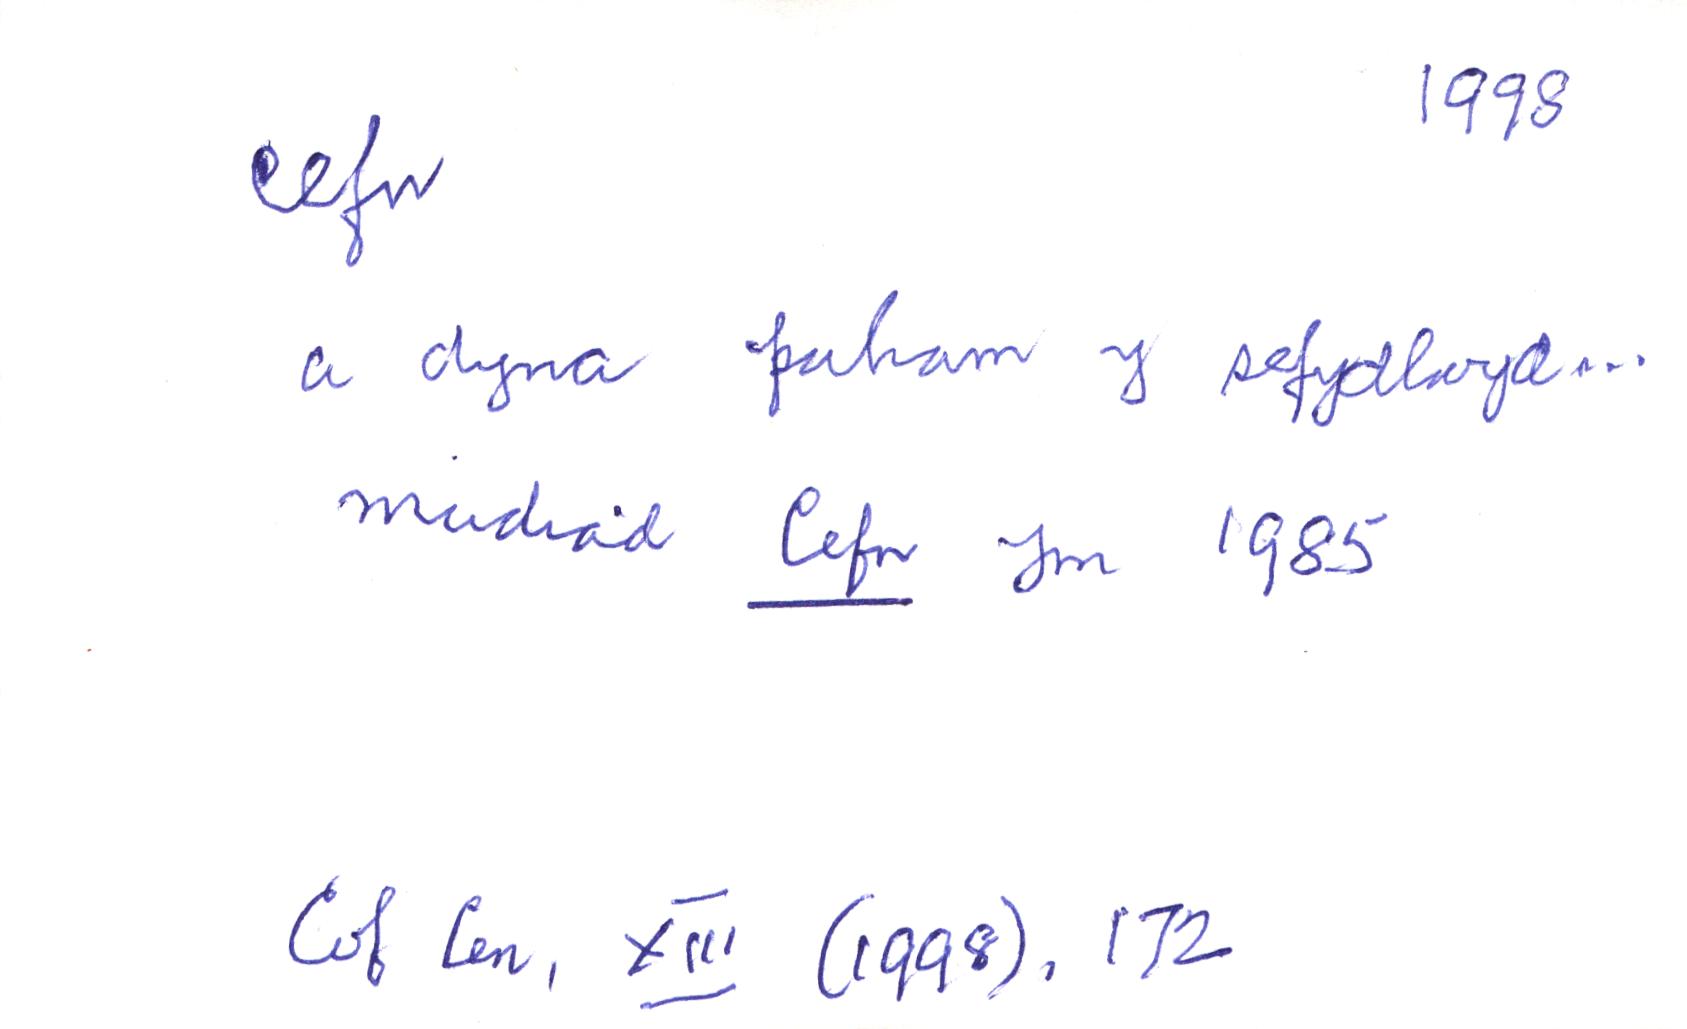 1998
cefn
a dyna paham y sefydlwyd...
mudiad Cefn ym 1985
Cof Cen, XIII (1998), 172